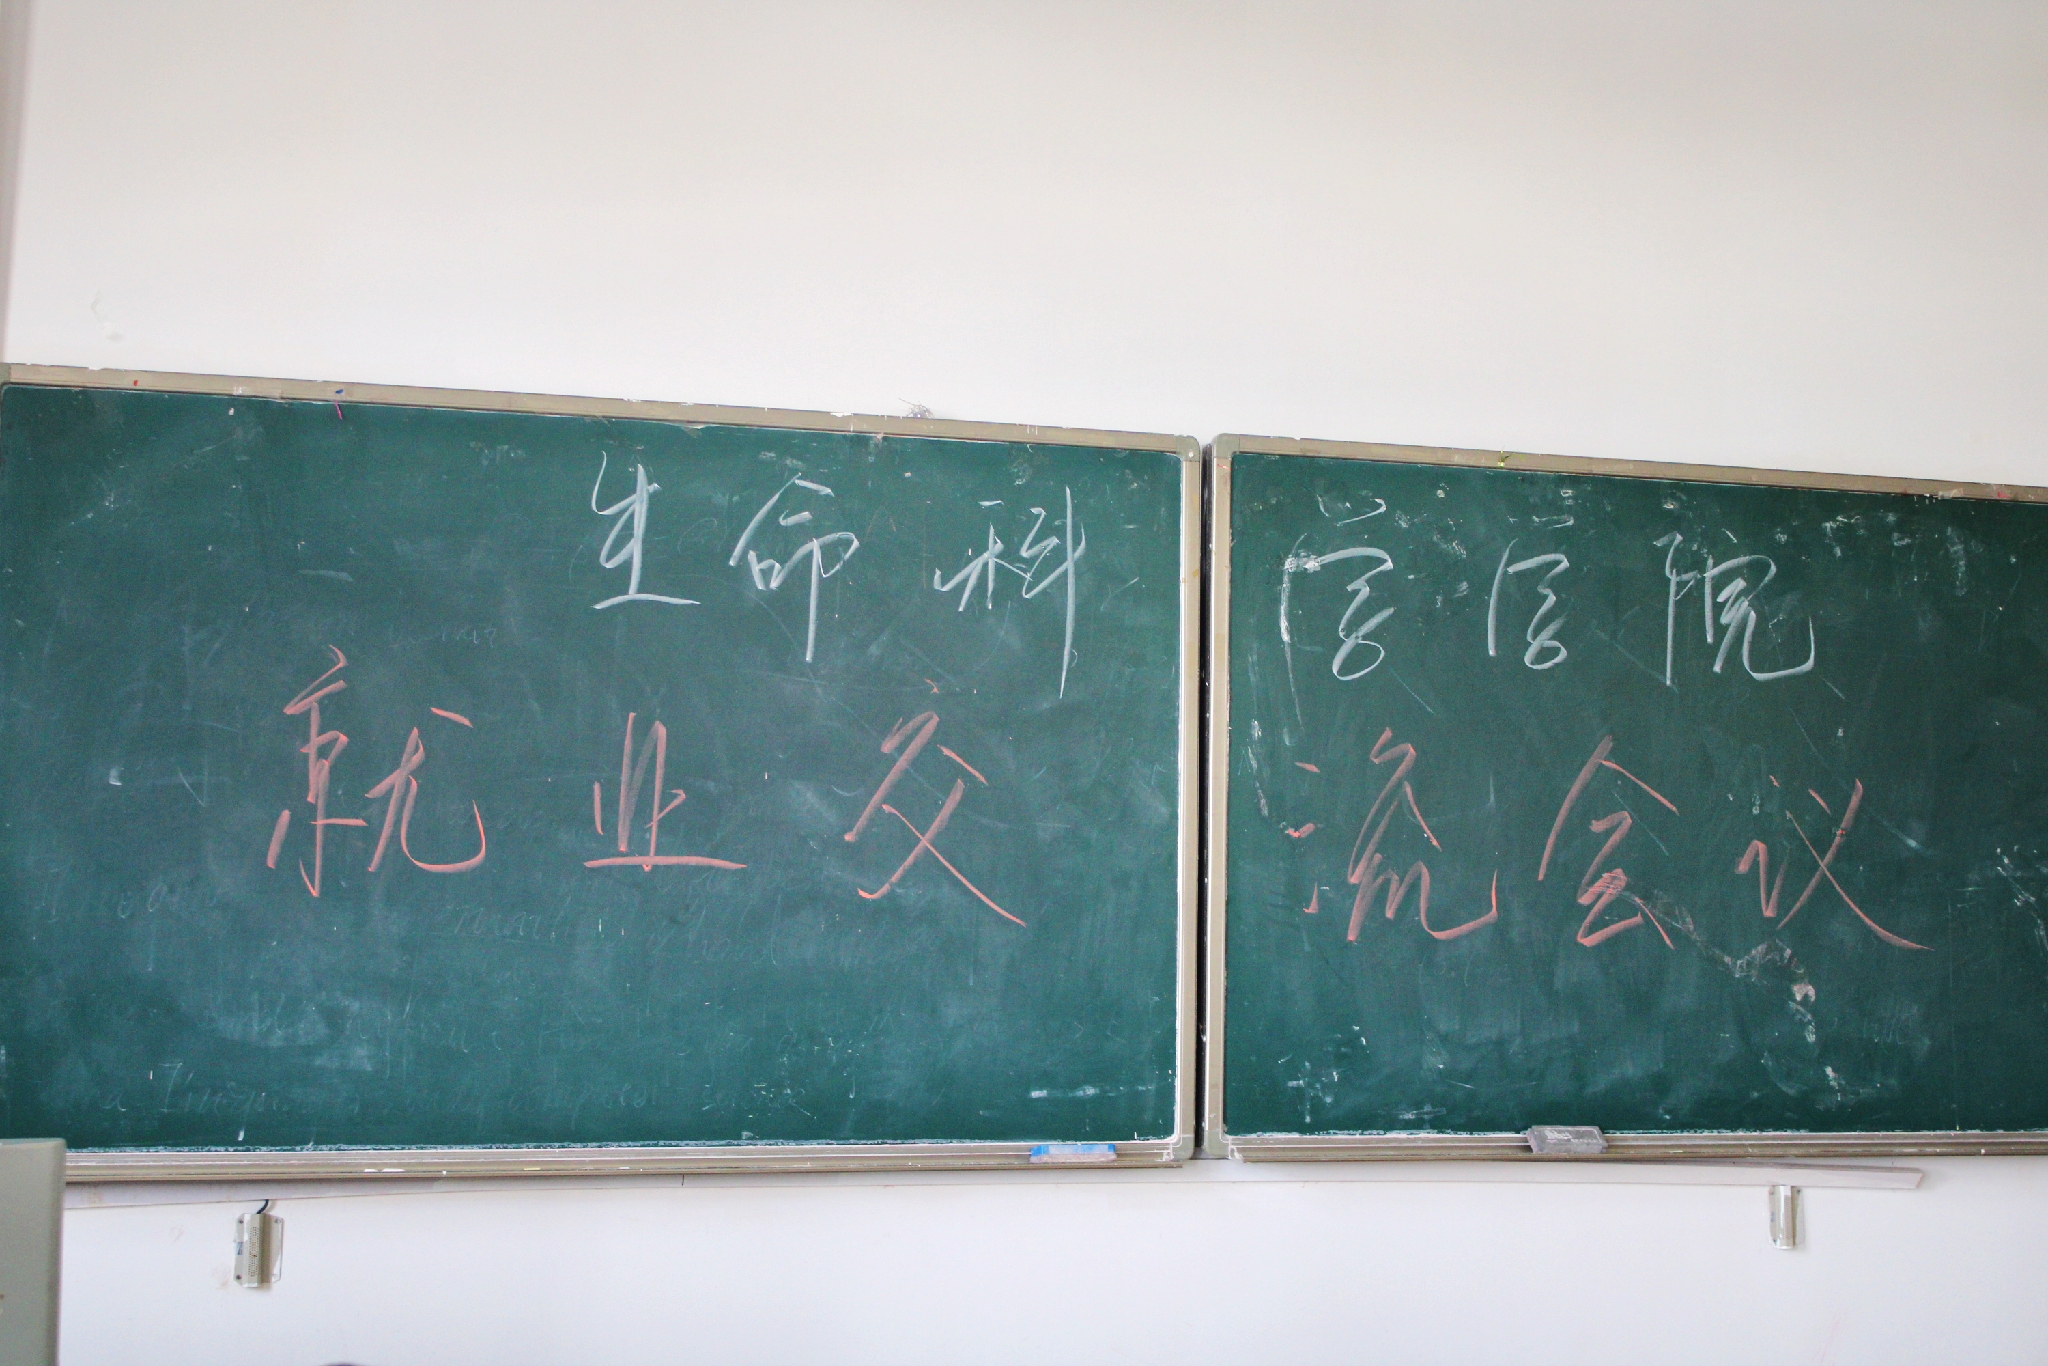 生命科学学院
就业交流会议